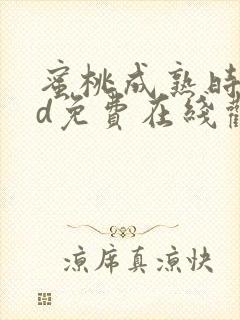 蜜桃成熟時
d免費在綫
涼席真涼快